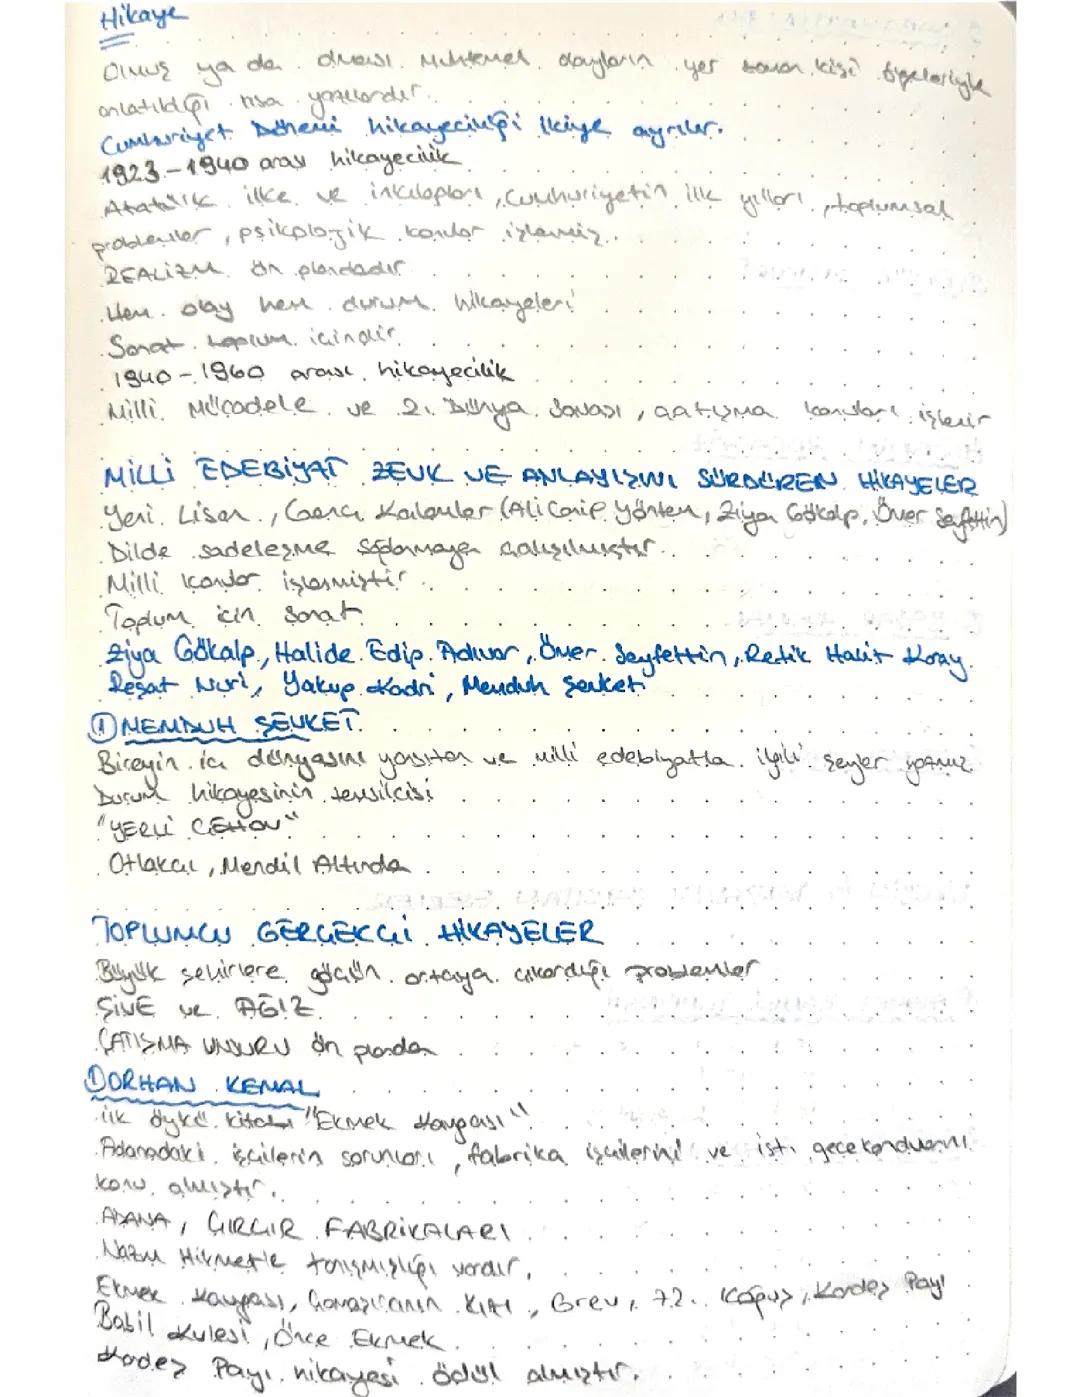 Hikaye
Olmuş ya da olması muhtemel olayların yer zaman kişi ögeleriyle
anlatıldığı kısa yazılardır.
Cumhuriyet Dönemi hikayeciliği ikiye ayrılır.
1923-1940 arası hikayecilik
Atatürk ilke ve inkılapları, Cumhuriyetin ilk yılları, toplumsal
problemler, psikolojik konular işlenmiş.
REALİZM ön plandadır
Hem olay hem durum hikayeleri
Sanat toplum içindir.
1940-1960 arası hikayecilik
Milli Mücadele ve 2. Dünya Savaşı, çatışma konuları işlenir
MİLLİ EDEBİYAT ZEVK VE ANLAYIŞINI SÜRDÜREN HİKAYELER
Yeni Lisan, Genç Kalemler (Ali Canip Yöntem, Ziya Gökalp, Ömer Seyfettin)
Dilde sadeleşme sağlanmaya çalışılmıştır.
Milli konular işlenmiştir.
Toplum için sanat
Ziya Gökalp, Halide Edip Adıvar, Ömer Seyfettin, Refik Halit Koray
Reşat Nuri, Yakup Kadri, Menduh Şevket
① MEMDUH ŞEVKET
Bireyin iç dünyasını yansıtan ve milli edebiyatla ilgili şeyler yazmış
Durum hikayesinin temsilcisi
"YERLİ ÇEHOV"
Otlakçı, Mendil Altında
TOPLUMCU GERÇEKÇİ HİKAYELER
Büyük şehirlere göçün ortaya çıkardığı problemler
ŞİVE ve AĞIZ
ÇATIŞMA UNSURU ön planda
① ORHAN KEMAL
ilk öykü kitabı "Ekmek Kavgası"
Adanadaki işçilerin sorunları, fabrika işçilerini ve ist. gecekondularını
konu almıştır.
ADANA, ÇIRÇIR FABRİKALARI
Nazım Hikmet'le tanışmışlığı vardır.
Ekmek Kavgası, Çamaşırcının Kızı, Grev, 72. Koğuş, Kardeş Payı
Babil Kulesi, Önce Ekmek
Kardeş Payı hikayesi ödül almıştır.